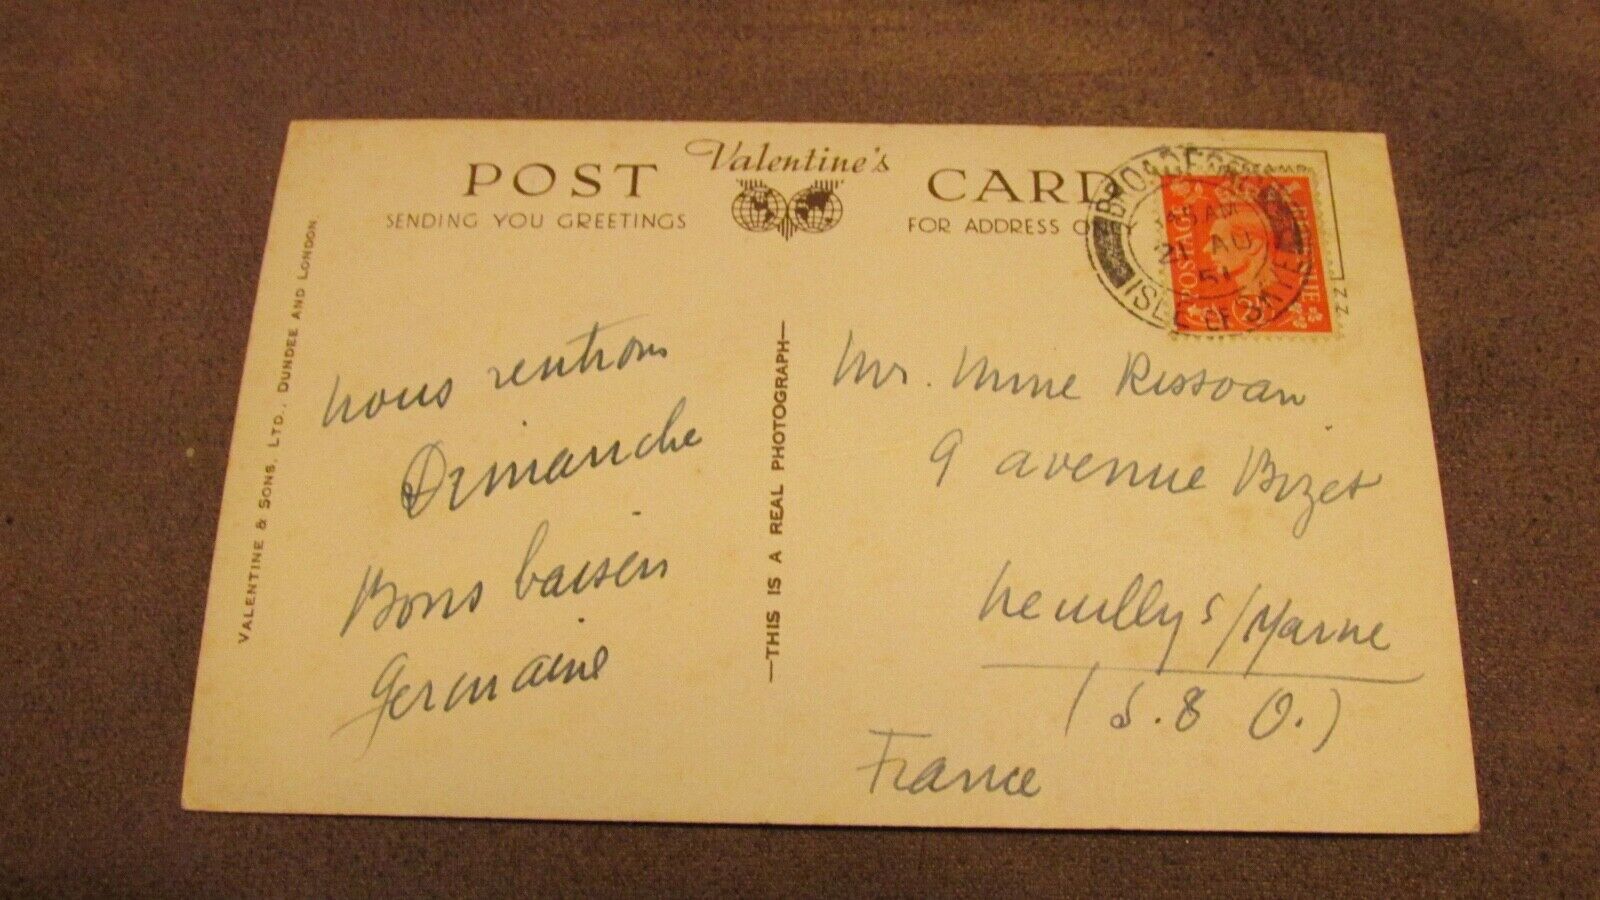 POST Valentine's CARD
SENDING YOU GREETINGS
FOR ADDRESS ONLY
BROADFORD
AM
21 AU
51
ISLE OF SKYE
POSTAGE
REVENUE
2½
VALENTINE & SONS, LTD., DUNDEE AND LONDON
—THIS IS A REAL PHOTOGRAPH—
nous rentrons
Dimanche
Bons baisers
Germaine
Mr. Mme Rissoan
9 avenue Bizet
Neuilly s/Marne
(S. & O.)
France